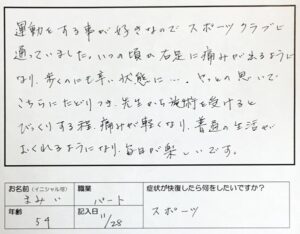 運動をする事が好きなので スポーツクラブに
通っていました。いつの頃か右足に痛みが出るように
なり、歩くのにも辛い状態に…。やっとの思いで
こちらにたどりつき、先生から施術を受けると
びっくりする程、痛みが軽くなり、普通の生活が
おくれるようになり、毎日が楽しいです。
お名前(イニシャル可) 職業 症状が快復したら何をしたいですか?
まみい パート スポーツ
年齢 記入日
54 11/28